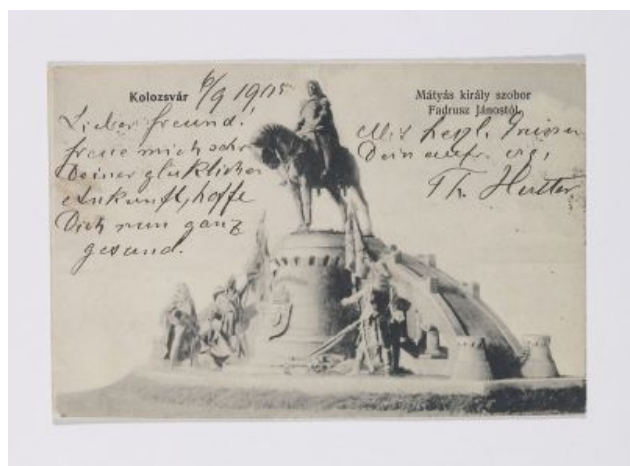 Kolozsvár 6/9 1905
Mátyás király szobor
Fadrusz Jánostól.
Lieber Freund!
freue mich sehr
Deiner glüklichen
Ankunft, hoffe
Dich nun ganz
gesund.
Mit herzl. Grüssen
Dein aufr. erg.
Th.